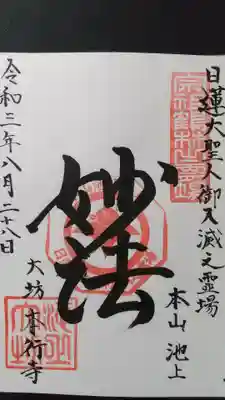 日蓮大聖人御入滅之霊場
本山 池上
妙法
大坊 本行寺
令和三年八月二十八日